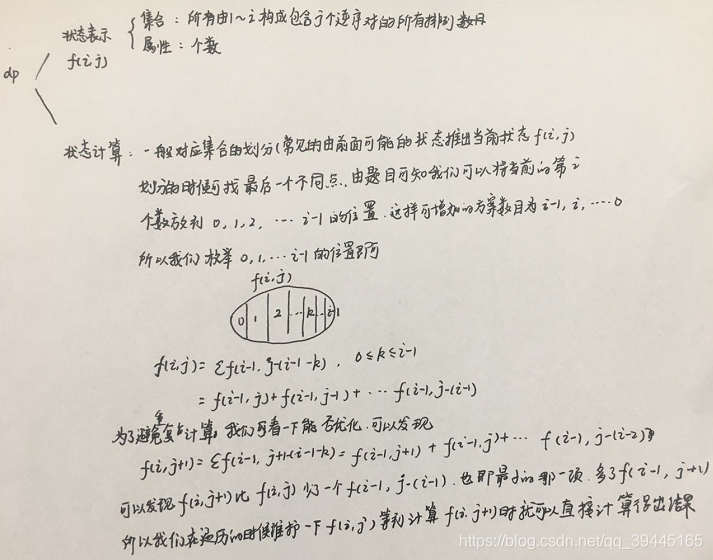 dp
状态表示
f(i,j)
集合：所有由1~i构成包含j个逆序对的所有排列数目
属性：个数
状态计算：一般对应集合的划分(常见的由前面可能的状态推出当前状态f(i,j)
划分的时候可找最后一个不同点、由题目可知我们可以将当前的第i
个数放到 0,1,2, … i-1 的位置. 这样可增加的方案数目为i-1, i, …. 0
所以我们枚举 0,1,… i-1 的位置即可
f(i,j)
0 1 2 … k … i-1
f(i,j)= Σf(i-1, j-(i-1-k) , 0≤k≤i-1
= f(i-1,j)+f(i-1,j-1)+… f(i-1,j-(i-1)
为了避免重复计算, 我们可看一下能否优化. 可以发现
f(i,j+1)=Σf(i-1, j+1-(i-1-k)= f(i-1,j+1) + f(i-1,j)+… f(i-1, j-(i-2)
可以发现 f(i,j+1)比 f(i,j) 少一个 f(i-1, j-(i-1). 也即最小的那一项. 多了f(i-1, j+1)
所以我们在遍历的时候维护一下 f(i,j) 等到计算 f(i,j+1)时就可以直接计算得出结果
https://blog.csdn.net/qq_39445165